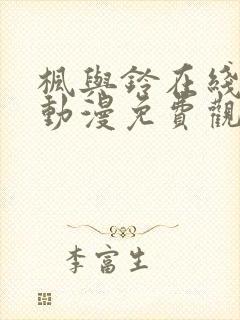 楓與鈴在綫
動漫免費觀
李富生